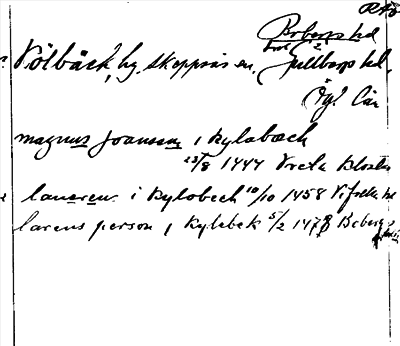 RAÄ
Boberps hd
Kölbäck, by, skeppsås sn, Gullbergs hd.
Ögl län
magnus joansson i kylabæck
23/8 1444 Vreta kloster
laurens i kylobech 10/10 1458 Vifolka hd
larens person i kylebek 5/2 1478 Boberg